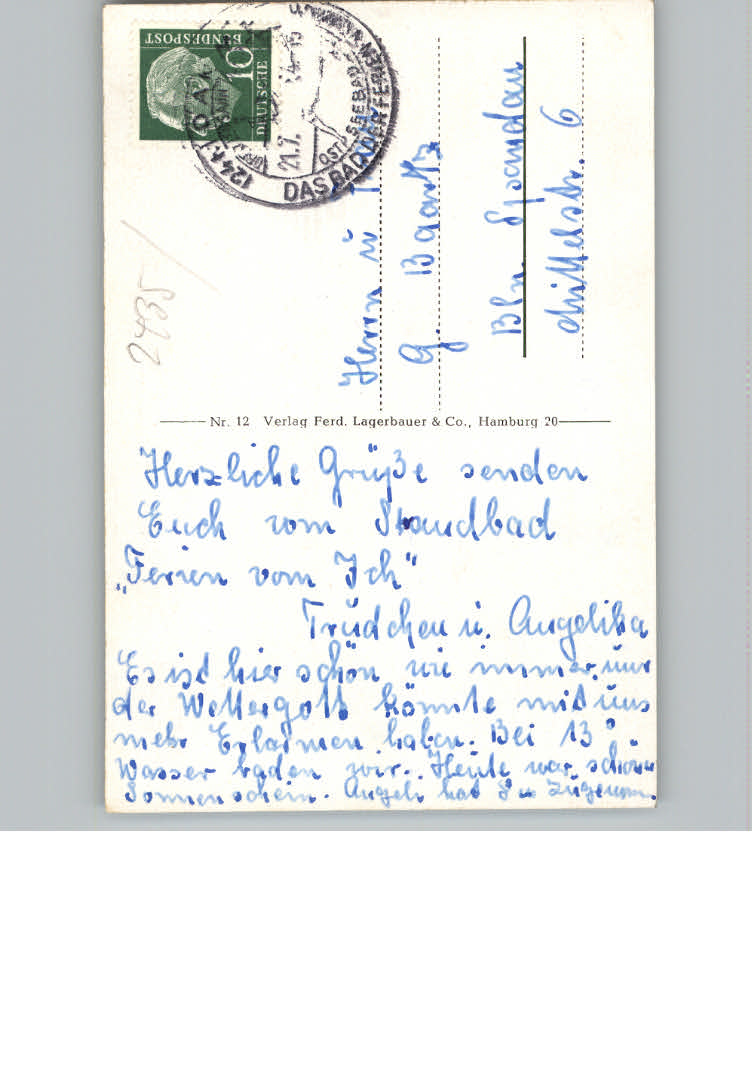 DEUTSCHE
BUNDESPOST
10
21.7.
-15
OSTSEEBAD
DAS BAD DER FERIEN
2435
Herrn u
G. Baartz
Bln. Spandau
Mittelstr. 6
Nr. 12 Verlag Ferd. Lagerbauer & Co., Hamburg 20
Herzliche Grüße senden
Euch vom Strandbad
„Ferien vom Ich"
Trudchen u. Angelika
Es ist hier schön wie immer, nur
der Wettergott könnte mit uns
mehr Erbarmen haben. Bei 13°
Wasser baden wir. Heute war schöner
Sonnenschein. Angeli hat